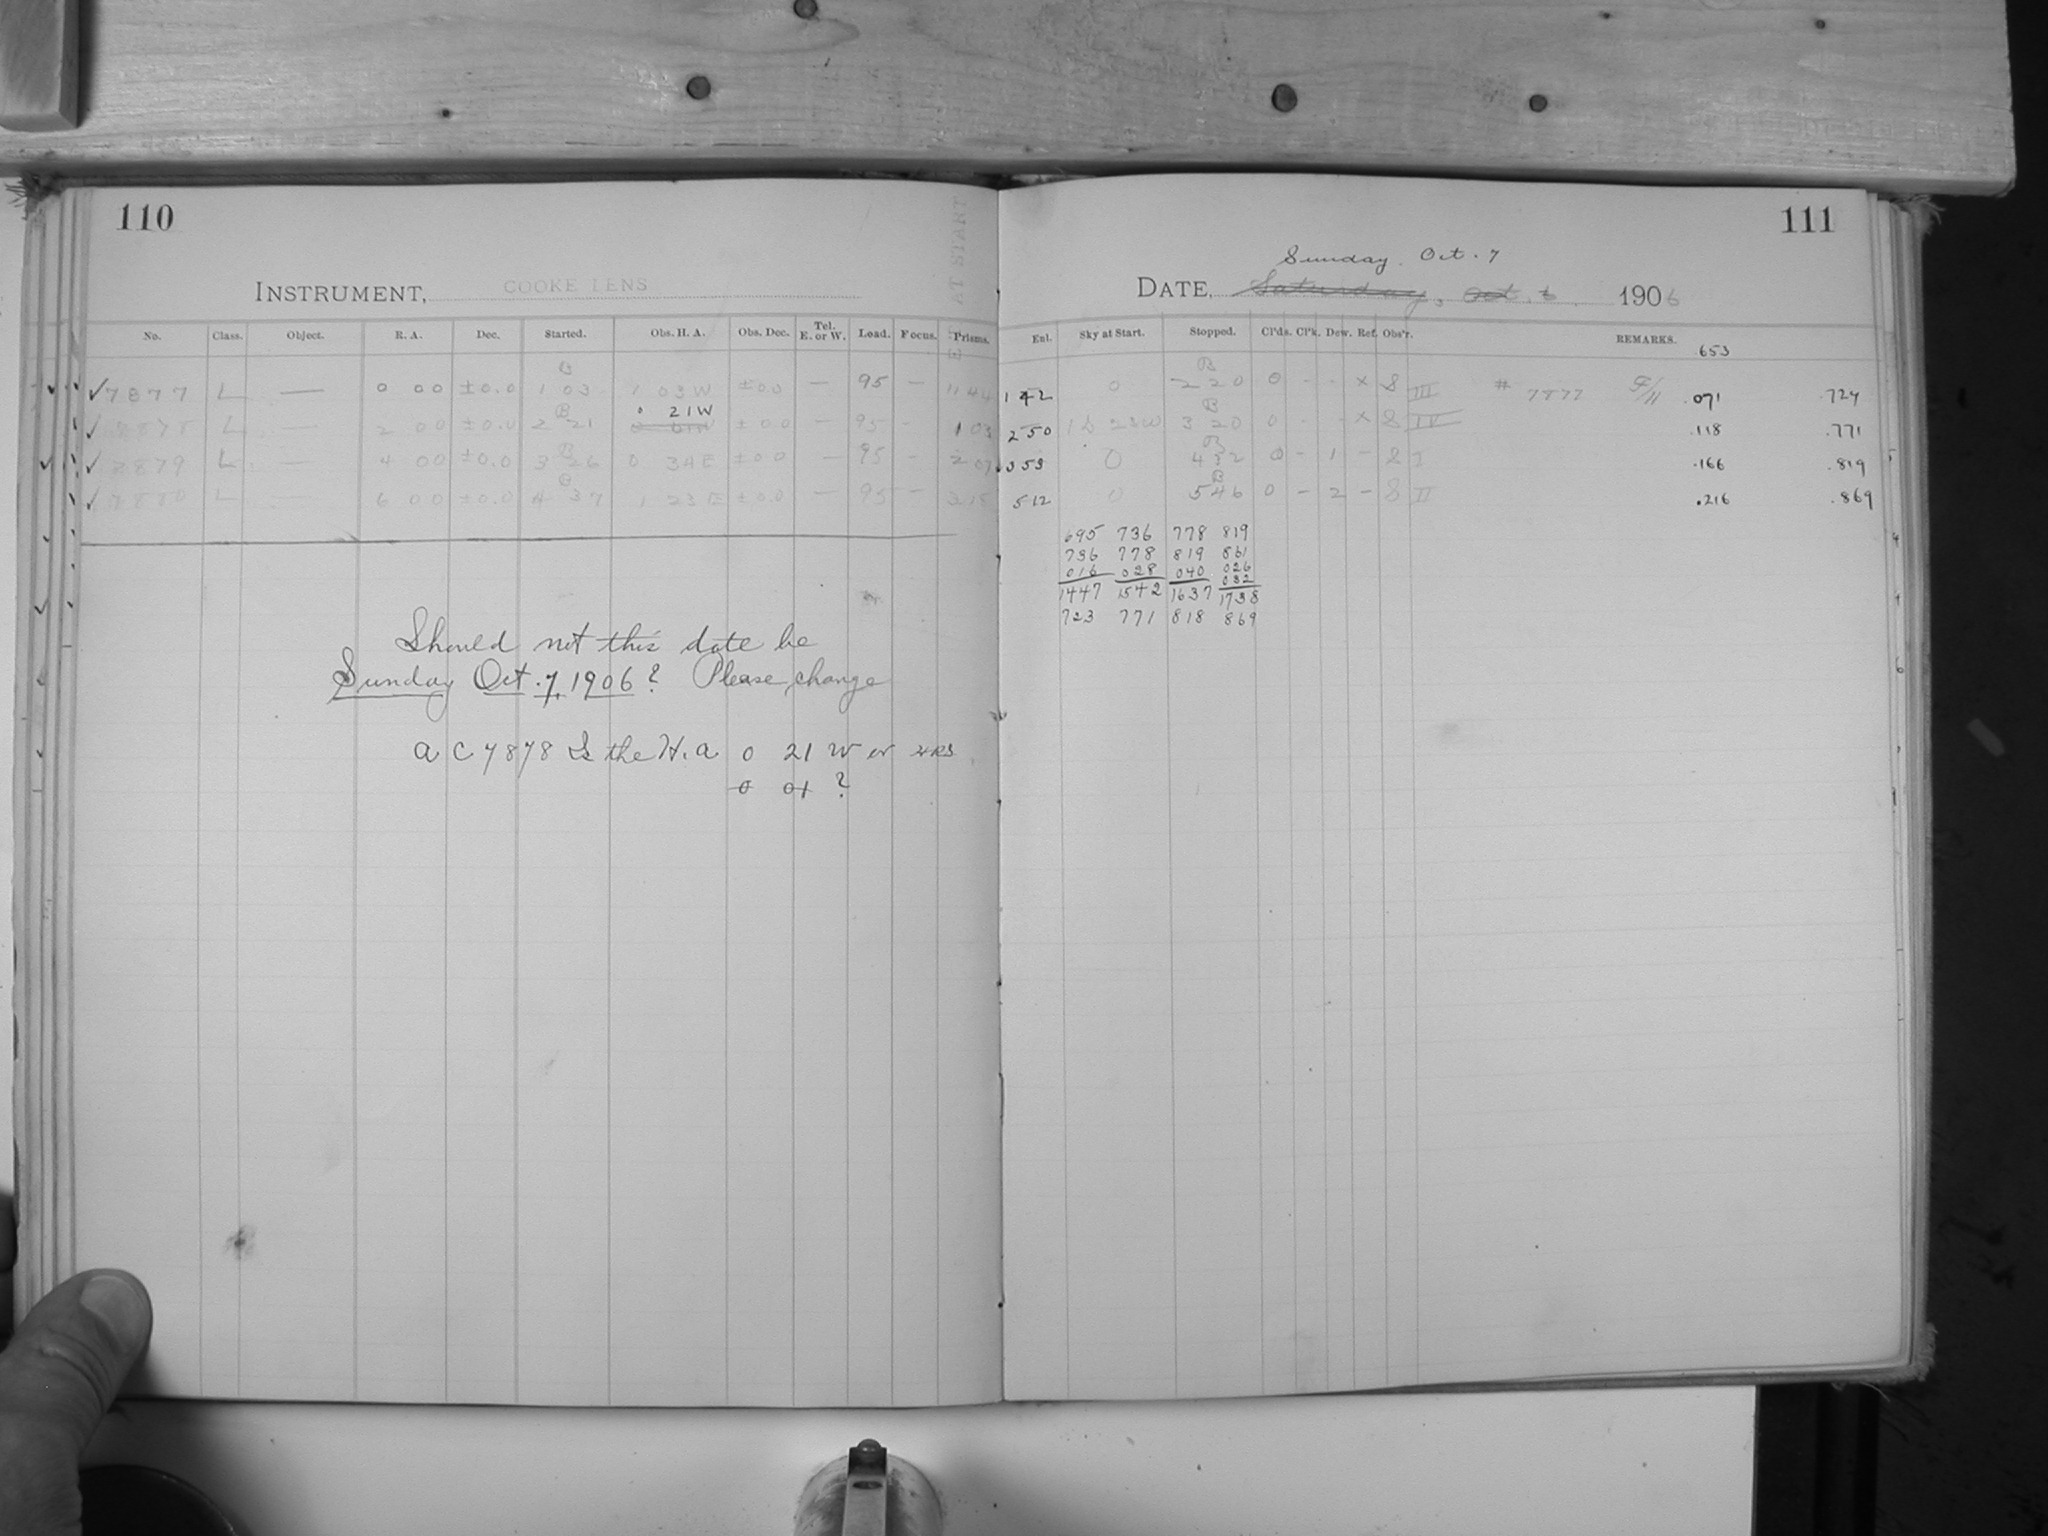 110
INSTRUMENT, COOKE LENS
AT START
No. Class. Object. R. A. Dec. Started. Obs. H. A. Obs. Dec. Tel. E. or W. Load. Focus. Prisms.
✓7877 L — 0 00 ±0.0 B 1 03 1 03W ±00 — 95 — 1144
✓7878 L — 2 00 ±0.0 B 2 21 0 21W ±00 — 95 — 1 03
✓7879 L — 4 00 ±0.0 B 3 26 0 34E ±00 — 95 — 2 07
✓7880 L — 6 00 ±0.0 B 4 37 1 23E ±00 — 95 — 3 18
Should not this date be
Sunday Oct. 7, 1906? Please change
A C 7878 Is the H.A 0 21 W or
0 01 ?
111
Sunday Oct. 7
DATE, Saturday, Oct. 6 1906
Enl. Sky at Start. Stopped. Cl'ds. Cl'k. Dew. Ref. Obs'r. REMARKS.
653
142 0 B 2 20 0 - - x S III # 7877 .071 .724
250 B 3 20 0 - - x S IV .118 .771
353 0 B 4 32 0 - 1 - S I .166 .819
512 0 B 5 46 0 - 2 - S II .216 .869
695 736 778 819
736 778 819 861
016 028 040 026
032
1447 1542 1637 1738
723 771 818 869